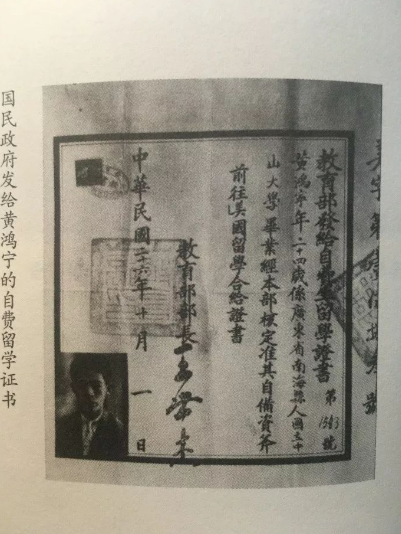 教育部發給自費生留學證書 第 號
黃鴻寧年二十四歲係廣東省南海縣人國立中
山大學畢業經本部核定准其自備資斧
前往美國留學合給證書
教育部部長王世杰
中華民國二十六年十月一日
国民政府发给黄鸿宁的自费留学证书